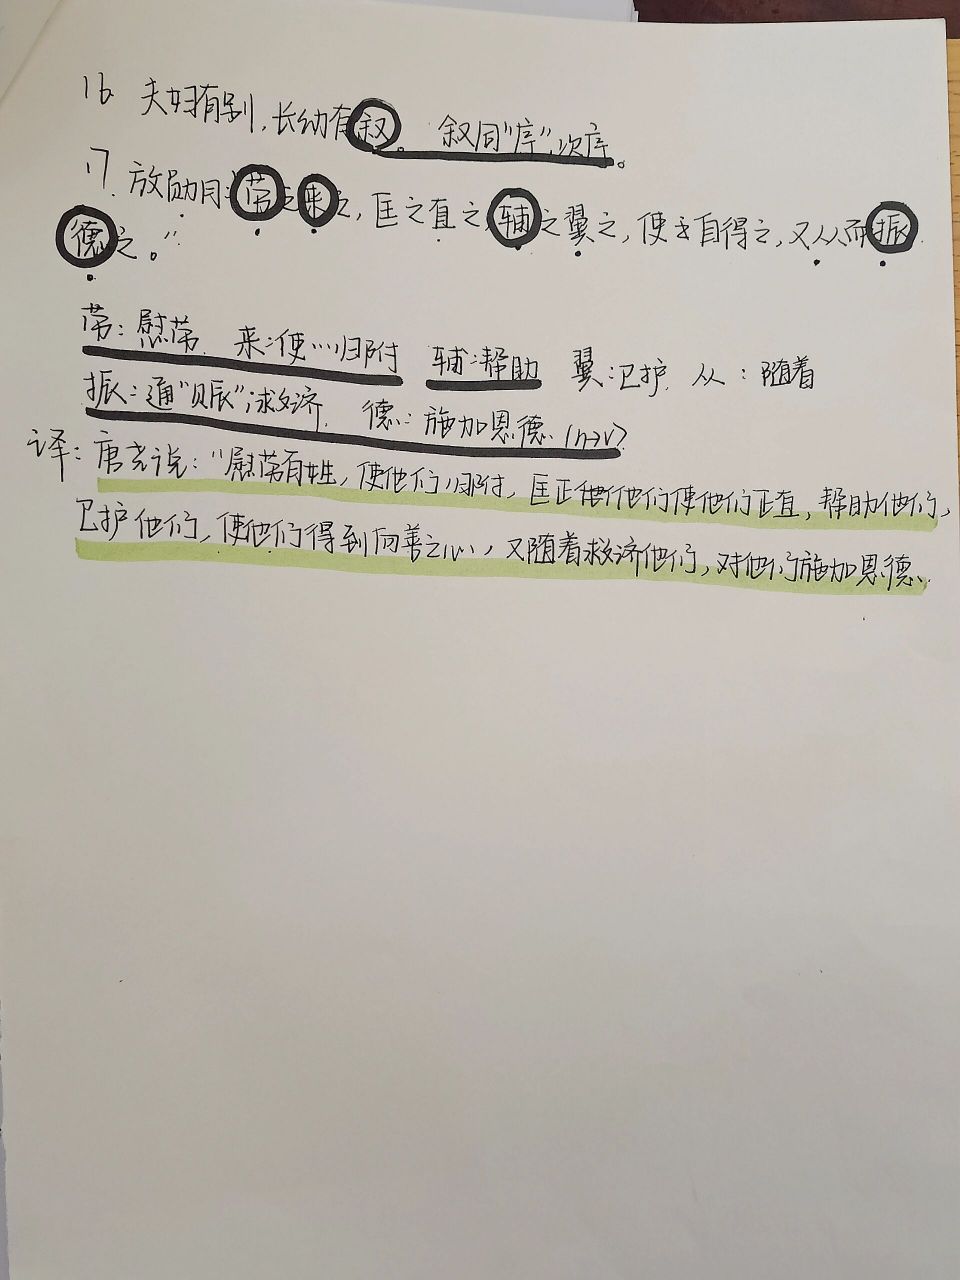 16. 夫妇有别,长幼有叙。 叙同“序”,次序。
17. 放勋曰:“劳之来之,匡之直之,辅之翼之,使自得之,又从而振
德之。”
劳:慰劳. 来:使…归附 辅:帮助 翼:卫护. 从:随着
振:通“赈”,救济. 德:施加恩德.(n→v)
译:唐尧说:“慰劳百姓,使他们归附,匡正他们他们使他们正直,帮助他们,
卫护他们,使他们得到向善之心,又随着救济他们,对他们施加恩德.